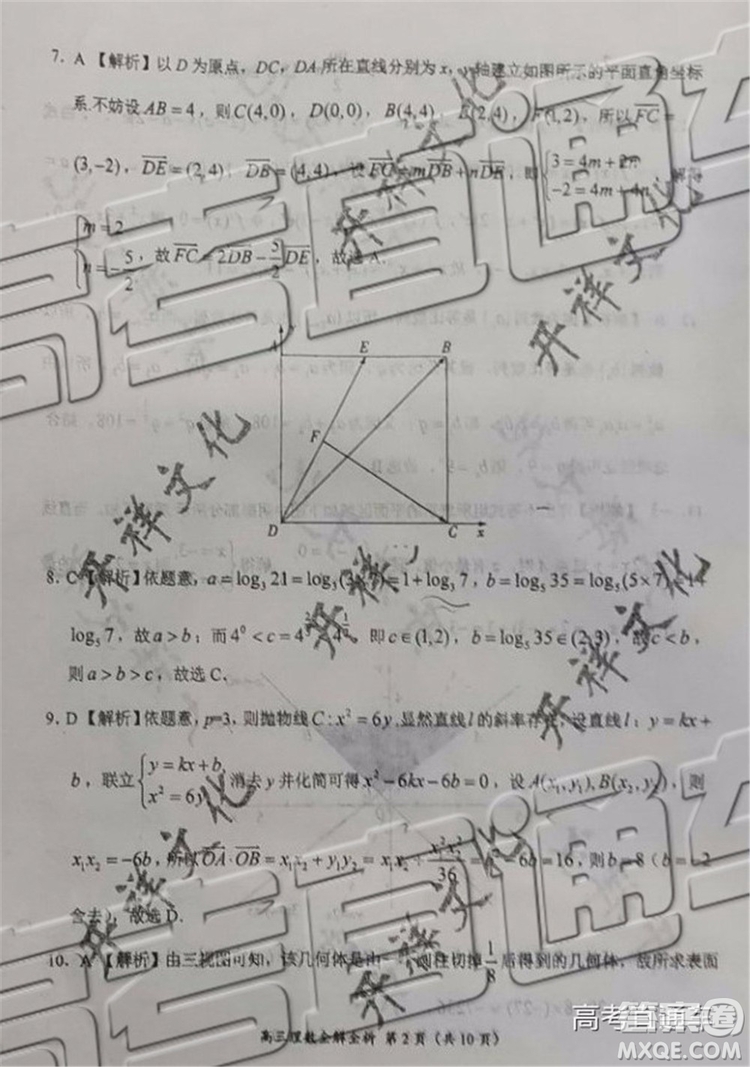 7. A 【解析】以 D 为原点，DC，DA 所在直线分别为 x，y 轴建立如图所示的平面直角坐标
系.不妨设 AB=4，则 C(4,0)，D(0,0)，B(4,4)，E(2,4)，F(1,2)，所以 FC =
(3,-2)，DE=(2,4)，DB=(4,4)，设 FC=mDB+nDE，即 {3=4m+2n -2=4m+4n，解得
{m=2 n=-5/2，故 FC=2DB-5/2DE，故选 A.
A E B
F
D C x
8. C【解析】依题意，a=log₃21=log₃(3×7)=1+log₃7，b=log₅35=log₅(5×7)=1+
log₅7，故 a>b；而 4⁰<c= 即 c∈(1,2)，b=log₅35∈(2,3)，故 c<b，
则 a>b>c，故选 C.
9. D【解析】依题意，p=3，则抛物线 C:x²=6y.显然直线 l 的斜率存在，设直线 l：y=kx+
b，联立{y=kx+b, x²=6y 消去 y 并化简可得 x²-6kx-6b=0，设 A(x₁,y₁),B(x₂,y₂)，则
x₁x₂=-6b，所以 OA·OB=x₁x₂+y₁y₂=x₁x₂+x₁²x₂²/36=b²-6b=16，则 b=8（b=-2
舍去），故选 D.
10. A【解析】由三视图可知，该几何体是由一个圆柱切掉 1/8 后得到的几何体，故所求表面
高三理数全解全析 第 2 页（共 10 页）
高考直通车
开祥文化
开祥文化
开祥文化
开祥文化
开祥文化
开祥文化
高考直通车
高考直通车